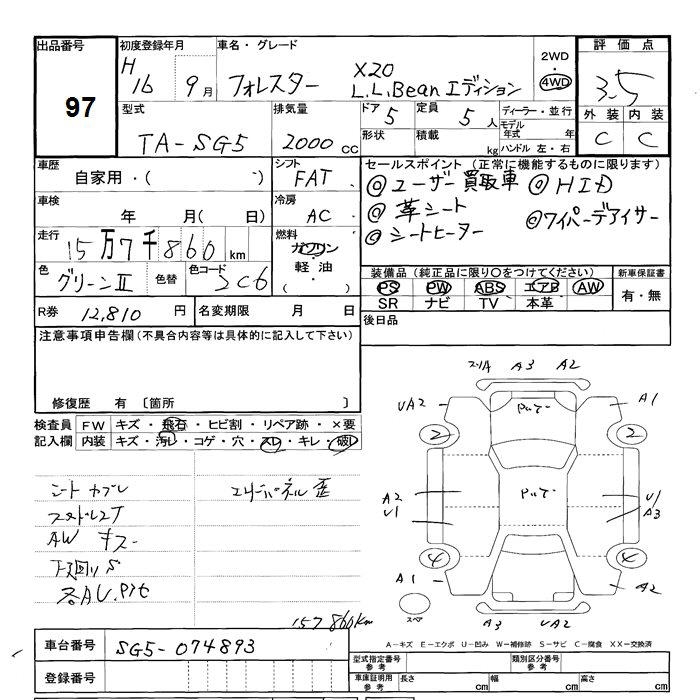 出品番号 初度登録年月 車名・グレード 2WD 評価点
97 H 16 9月 フォレスター X20 4WD 3.5
L.L.Bean エディション
外装 内装
C C
型式 排気量 ドア 定員 ディーラー・並行
TA-SG5 2000 cc 5 5人 モデル年式 年
形状 積載 kg ハンドル 左・右
車歴 シフト セールスポイント (正常に機能するものに限ります)
自家用・( ) FAT ◎ユーザー買取車 ◎HID
車検 冷房 ◎革シート
年 月( 日) AC ◎シートヒーター ◎ワイパーデアイサー
走行 燃料
15万7千860km ガソリン
軽油
( ・ )
色 色替 色コード 装備品 (純正品に限り○をつけてください) 新車保証書
グリーンⅡ PS PW ABS エアB AW 有・無
SR ナビ TV 本革
R券 12,810円 名変期限 月 日 後日品
注意事項申告欄 (不具合内容等は具体的に記入して下さい)
修復歴 有 〔箇所 〕
検査員 FW キズ・飛石・ヒビ割・リペア跡・×要
記入欄 内装 キズ・汚レ・コゲ・穴・スレ・キレ・破レ
AW キズ
157860km
A3 A2
UA2 A1
2 2
A2 U1 U1 A3
4 4
A1 A2
スペア
A3 UA2
A-キズ E-エクボ U-凹み W-補修跡 S-サビ C-腐食 XX-交換済
車台番号 SG5-074893
登録番号
型式指定番号 参考 類別区分番号 参考
車庫証明用 参考 長さ cm 幅 cm 高さ cm